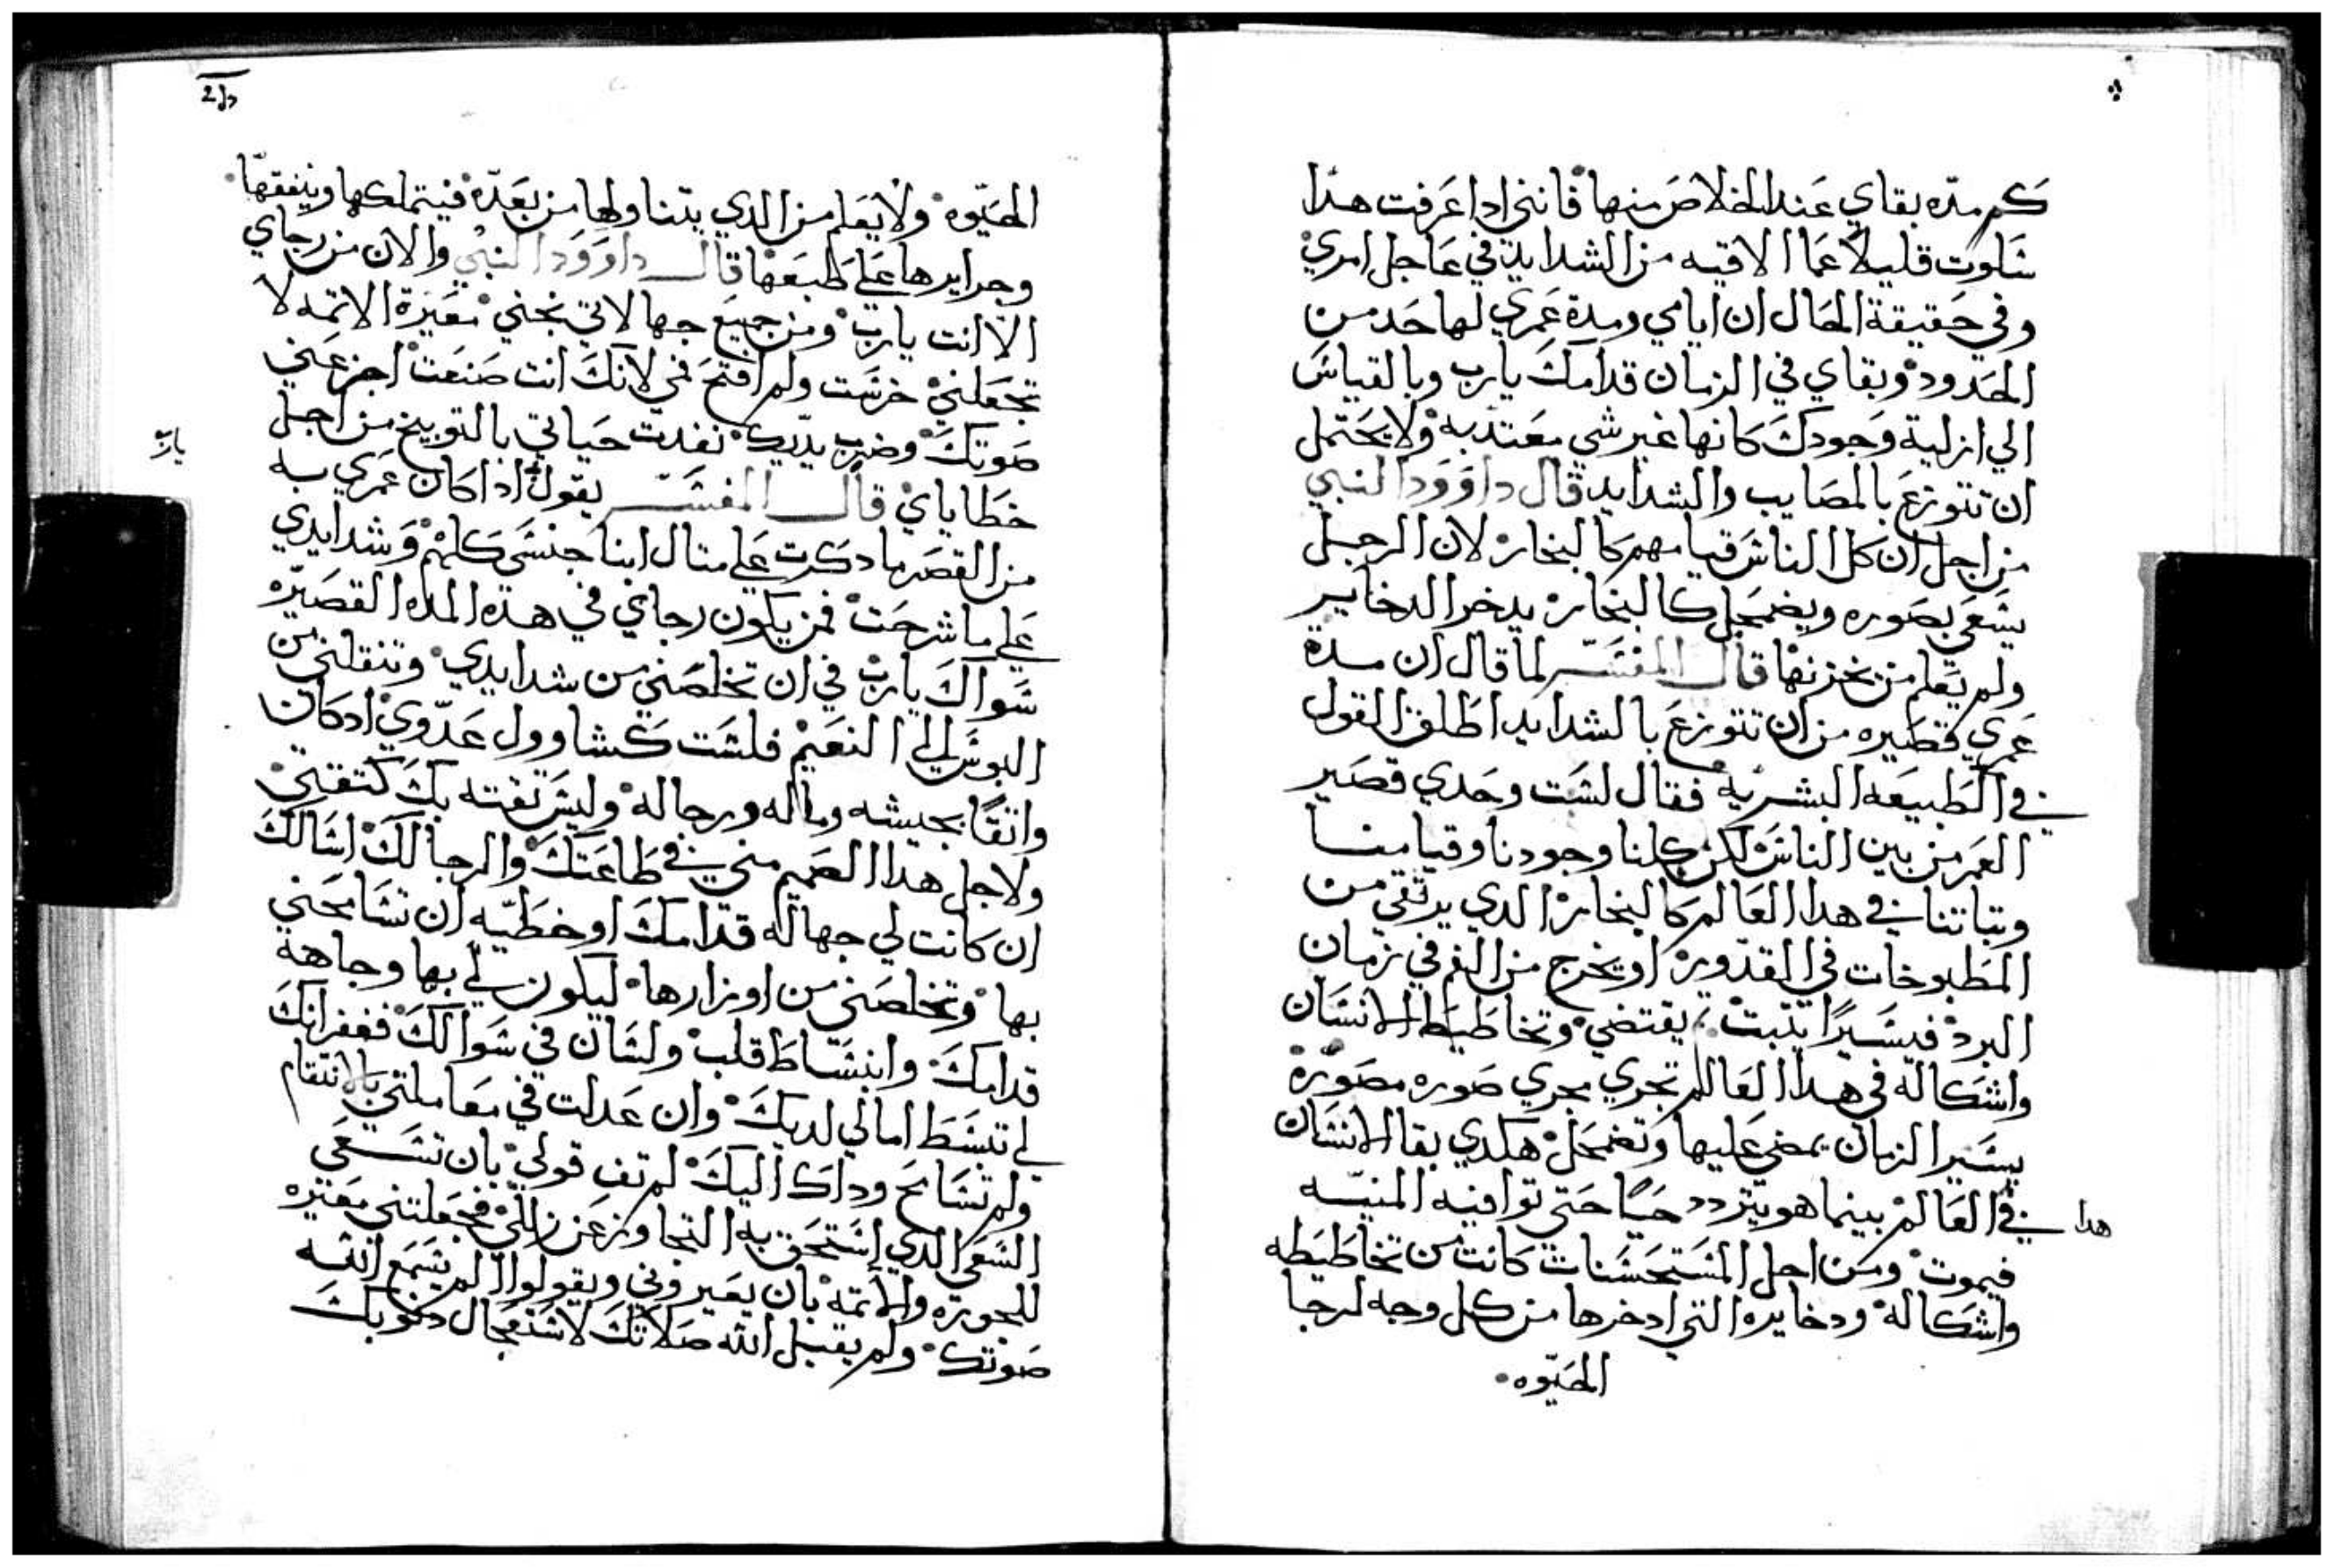 كم مده بقاي عند الخلاص منها فانني ادا عرفت هدا
سَلوت قليلاً عما الاقيه من الشدايد في عاجل امري
وفي حقيقة الحال ان ايامي ومدة عمري لها حد من
الحدود وبقاي في الزمان قدامك يارب وبالقياس
الي ازلية وجودك كانها غير شي معتد به ولا يحتمل
ان تتوزع بالمصايب والشدايد قال داوود النبي
من اجل ان كل الناس قيامهم كالبخار لان الرجل
يسعي بصوره ويضمحل كالبخار يدخر الدخاير
ولم يعلم من يخزنها قال المفسر لما قال ان مدة
عمري قصيره من ان تتوزع بالشدايد اطلق القول
في الطبيعه البشريه فقال لست وحدي قصير
العمر من بين الناس لكن كلنا وجودنا وقيامنا
وتباتنا في هدا العالم كالبخار الدي يرتقي من
المطبوخات في القدوره او يخرج من الفم في زمان
البرد فيسيرًا يتبت يقتضي وتخاطيط الانسان
واشكاله في هدا العالم تجري مجري صوره مصوره
يسير الزمان يمضي عليها وتضمحل هكدي بقا الانسان
هدا
في العالم بينما هو يتردد حيًا حتي توافيه المنيه
فيموت ومن اجل المستحسنات كانت من تخاطيطه
واشكاله ودخايره التي ادخرها من كل وجه لرجا
الحيوه

الحيوه ولا يعلم من الدي يتناولها من بعده فيتملكها وينفقها
وجرايرها علي طبعها قال داوود النبي والان من رجاي
الا انت يارب ومن جميع جهالاتي نجني معيرة الاتمه لا
تجعلني خرست ولم افتح في لانك انت صنعت اجز عني
صوتك وضرب يديك نفدت حياتي بالتوبيخ من اجل
خطاياي قال المفسر يقول اذا كان عمري به
يارب
من القصر ما دكرت علي متال ابنا جنسي كلهم وشدايدي
علي ما شرحت فمن يكون رجاي في هده المده القصيره
سواك يارب في ان تخلصني من شدايدي وتنقلني من
البوس الي النعيم فلست كشاوول عدوي ادكان
واتقًا بجيشه وماله ورجاله وليس تقته بك كتقتي
ولاجل هدا الصميم مني في طاعتك والرجا لك اسالك
ان كانت لي جهاله قدامك او خطيه ان تسامحني
بها وتخلصني من اوزارها ليكون لي بها وجاهه
قدامك وانبساط قلب ولسان في سوالك فغفرانك
لي تبسط امالي لديك وان عدلت في معاملتي بالانتقام
ولم تسامح وداك اليك لم تف قولي بان تسعي
السعي الدي استحق به التجاوز عن زللي فجعلتني معيره
للجوره والاتمه بان يعيروني ويقولوا لم يسمع الله
صوتك ولم يقبل الله صلاتك لاستفحال دنوبك